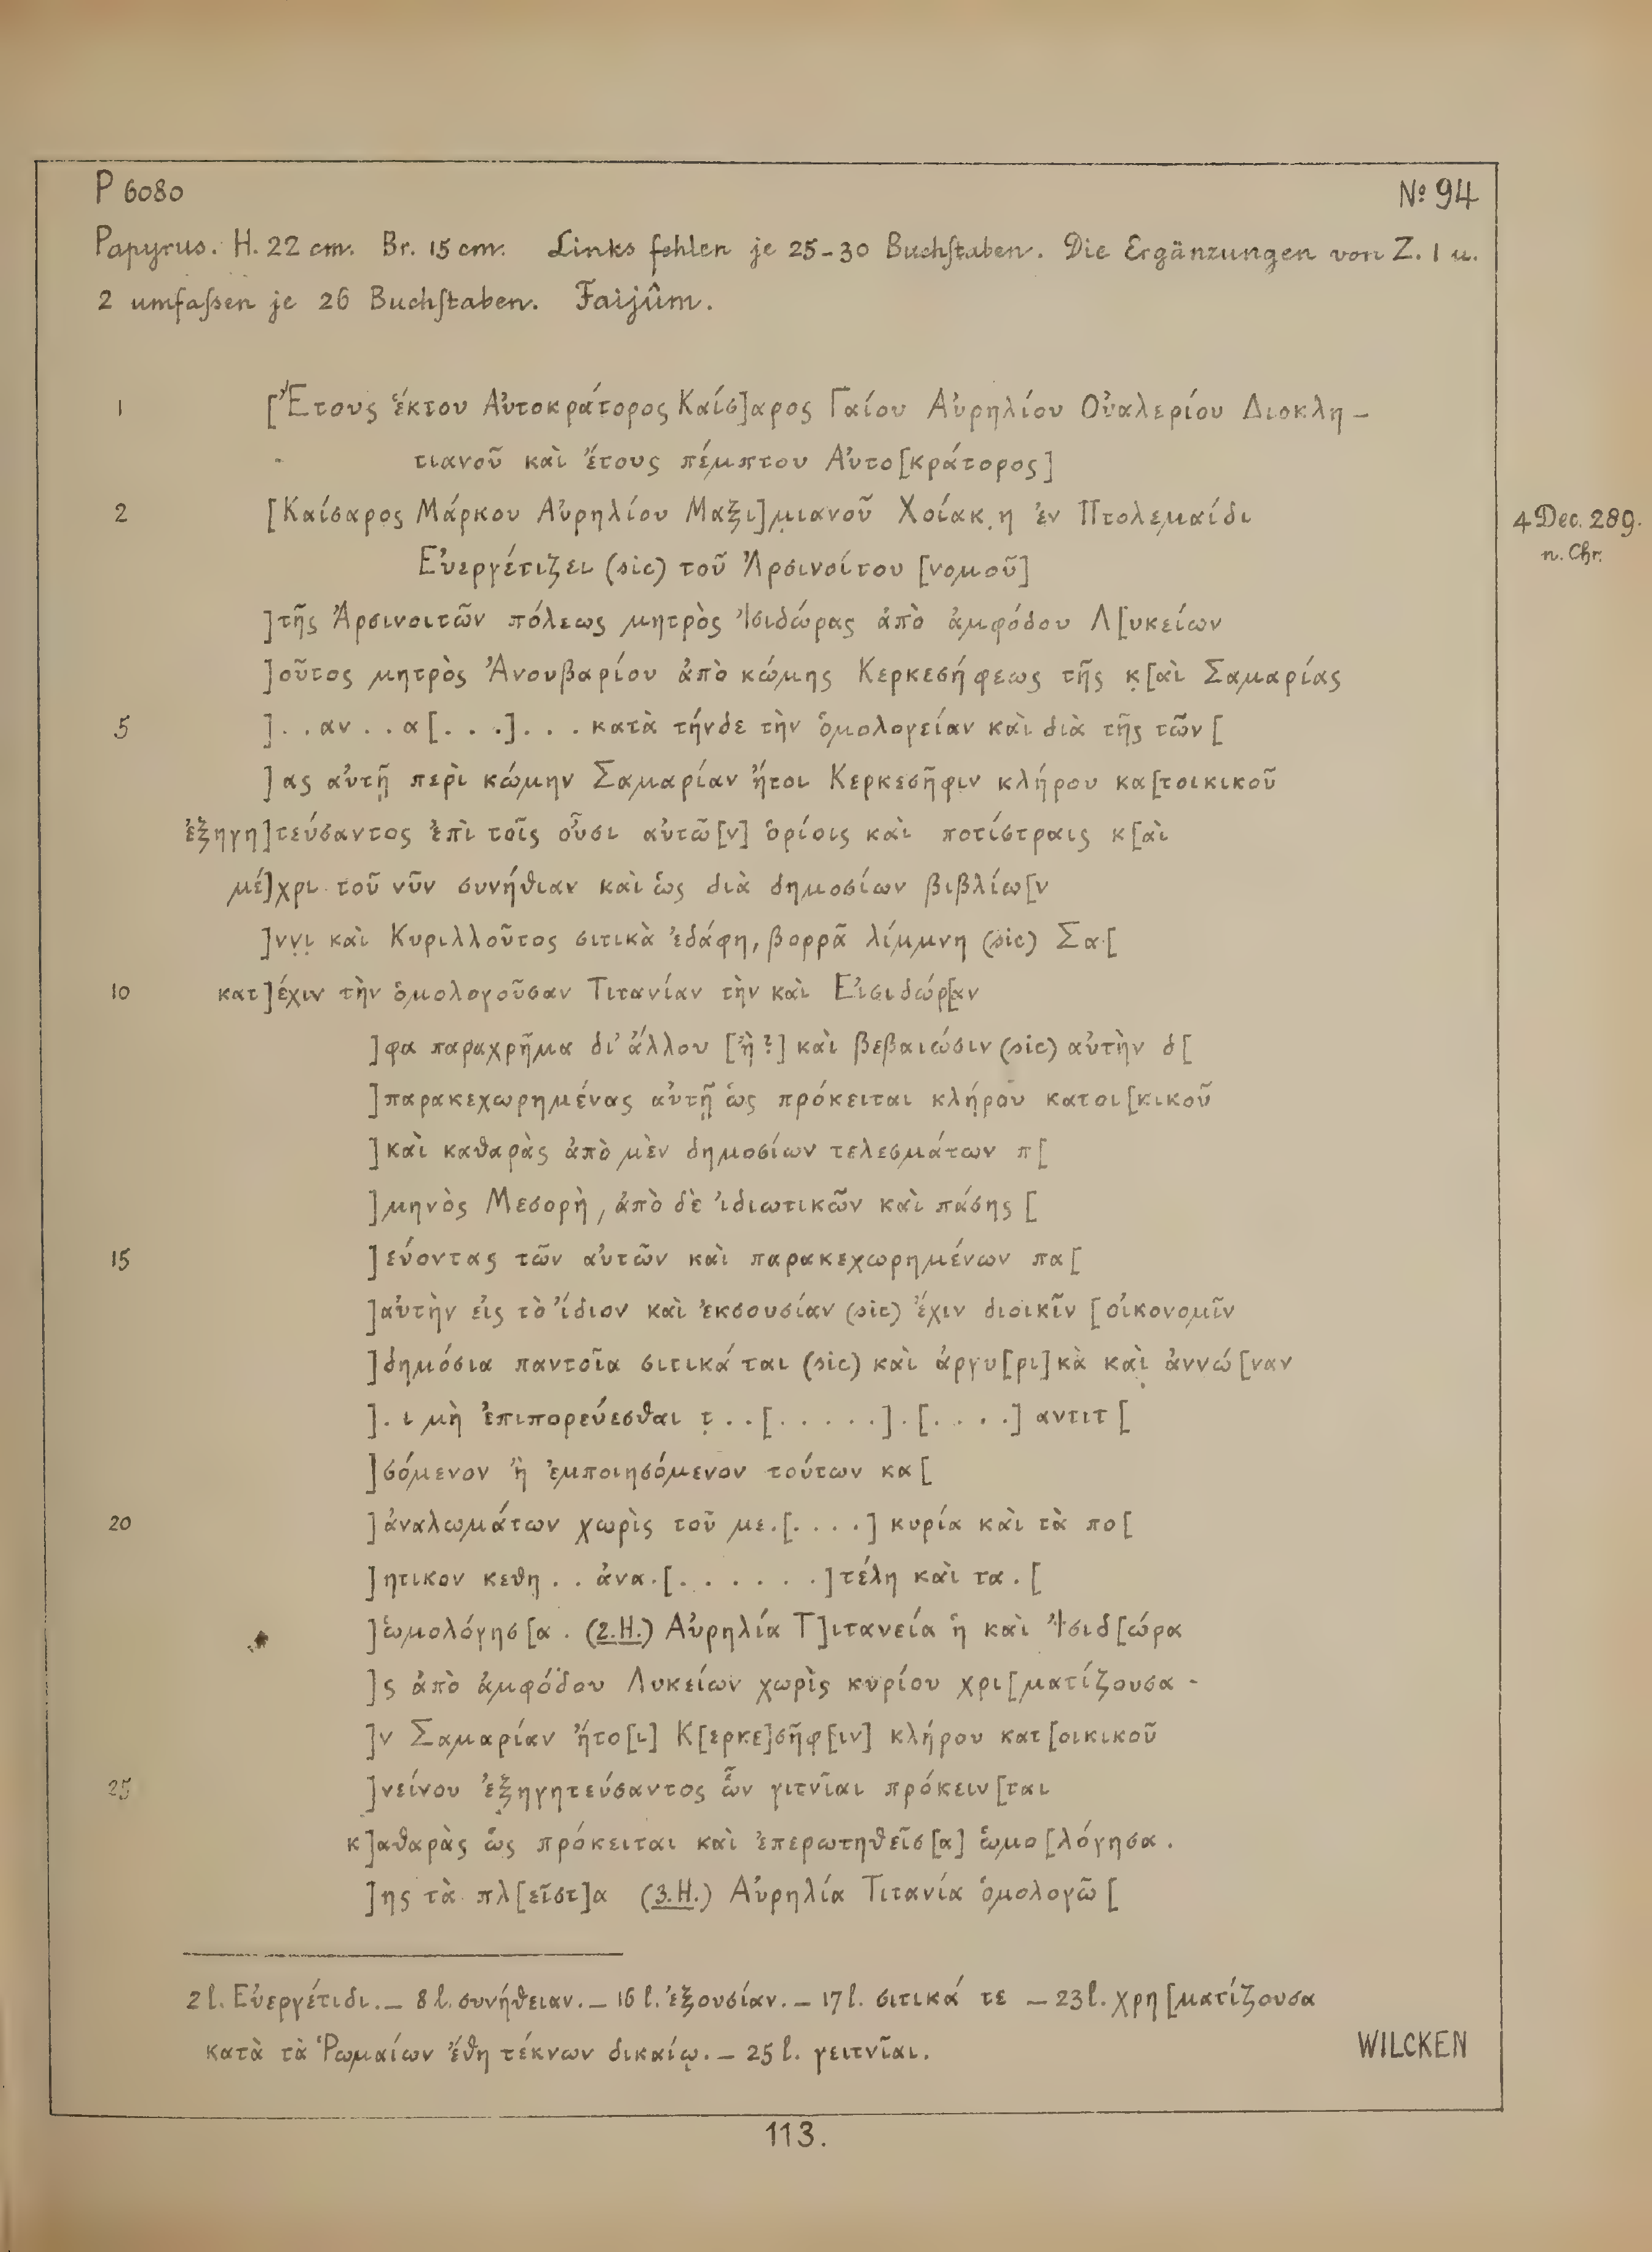 P 6080 № 94
Papyrus. H. 22 cm. Br. 15 cm. Links fehlen je 25-30 Buchstaben. Die Ergänzungen von Z. 1 u.
2 umfassen je 26 Buchstaben. Faijûm.
1 [Ἔτους ἕκτου Αὐτοκράτορος Καίσ]αρος Γαίου Αὐρηλίου Οὐαλερίου Διοκλη-
τιανοῦ καὶ ἔτους πέμπτου Αὐτο[κράτορος]
2 [Καίσαρος Μάρκου Αὐρηλίου Μαξι]μιανοῦ Χοίακ η ἐν Πτολεμαίδι 4 Dec. 289.
Εὐεργέτιζει (sic) τοῦ Ἀρσινοίτου [νομοῦ] n. Chr.
]τῆς Ἀρσινοιτῶν πόλεως μητρὸς Ἰσιδώρας ἀπὸ ἀμφόδου Λ[υκείων
]οῦτος μητρὸς Ἀνουβαρίου ἀπὸ κώμης Κερκεσήφεως τῆς κ̣[αὶ Σαμαρίας
5 ]. . αν . . α[. . .]. . . κατὰ τήνδε τὴν ὁμολογείαν καὶ διὰ τῆς τῶν [
]ας αὐτῇ περὶ κώμην Σαμαρίαν ἤτοι Κερκεσῆφιν κλήρου κα[τοικικοῦ
ἐξηγη]τεύσαντος ἐπὶ τοῖς οὖσι αὐτῶ[ν] ὁρίοις καὶ ποτίστραις κ[αὶ
μέ]χρι τοῦ νῦν συνήθιαν καὶ ὡς διὰ δημοσίων βιβλίω[ν
]νν̣ι̣ καὶ Κυριλλοῦτος σιτικὰ ἐδάφη, βορρᾶ λίμμνη (sic) Σα[
10 κατ]έχιν τὴν ὁμολογοῦσαν Τιτανίαν τὴν καὶ Εἰσιδώρ[αν
]φα παραχρῆμα δι' ἄλλου [ἢ ?] καὶ βεβαιώσιν (sic) αὐτὴν δ[
]παρακεχωρημένας αὐτῇ ὡς πρόκειται κλή̣ρου κατοι[κικοῦ
]καὶ καθαρὰς ἀπὸ μὲν δημοσίων τελεσμάτων π[
]μηνὸς Μεσορὴ, ἀπὸ δὲ ἰδιωτικῶν καὶ πάσης [
15 ]εύοντας τῶν αὐτῶν καὶ παρακεχωρημένων πα[
]αὐτὴν εἰς τὸ ἴδιον καὶ ἐκσουσίαν (sic) ἔχιν διοικῖν [οἰκονομῖν
]δημόσια παντοῖα σιτικά ται (sic) καὶ ἀργυ[ρι]κὰ καὶ ἀννώ[ναν
]. ι μὴ ἐπιπορεύεσθαι τ̣ . . [. . . . .] . [. . . .] αντιτ [
]σόμενον ἢ ἐμποιησόμενον τούτων κα[
20 ]ἀναλωμάτων χωρὶς τοῦ με.[. . . .] κυρία καὶ τὰ πο[
]ητικον κεθη . . ἀνα.[. . . . . .]τέλη καὶ τα . [
]ὡμολόγησ[α . (2.H.) Αὐρηλία Τ]ιτανεία ἡ καὶ Ἰσιδ[ώρα
]ς ἀπὸ ἀμφόδου Λυκείων χωρὶς κυρίου χρι[ματίζουσα -
]ν Σαμαρίαν ἤτο[ι] Κ[ερκε]σῆφ[ιν] κλήρου κατ[οικικοῦ
25 ]νείνου ἐξηγητεύσαντος ὧν γιτνῖαι πρόκειν[ται
κ]αθαρὰς ὡς πρόκειται καὶ ἐπερωτηθεῖσ[α] ὡμο[λόγησα.
]ης τὰ πλ[εῖστ]α (3.H.) Αὐρηλία Τιτανία ὁμολογῶ [
2 l. Εὐεργέτιδι. – 8 l. συνήθειαν. – 16 l. ἐξουσίαν. – 17 l. σιτικά τε – 23 l. χρη[ματίζουσα
κατὰ τὰ Ῥωμαίων ἔθη τέκνων δικαίῳ. – 25 l. γειτνῖαι.
WILCKEN
113.